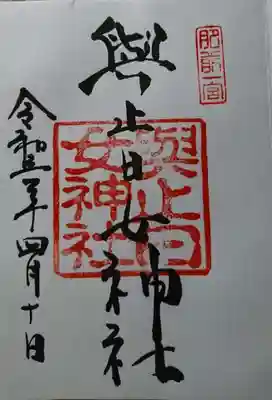 肥前一宮
與止日女神社
與止日
女神社
令和三年四月十日